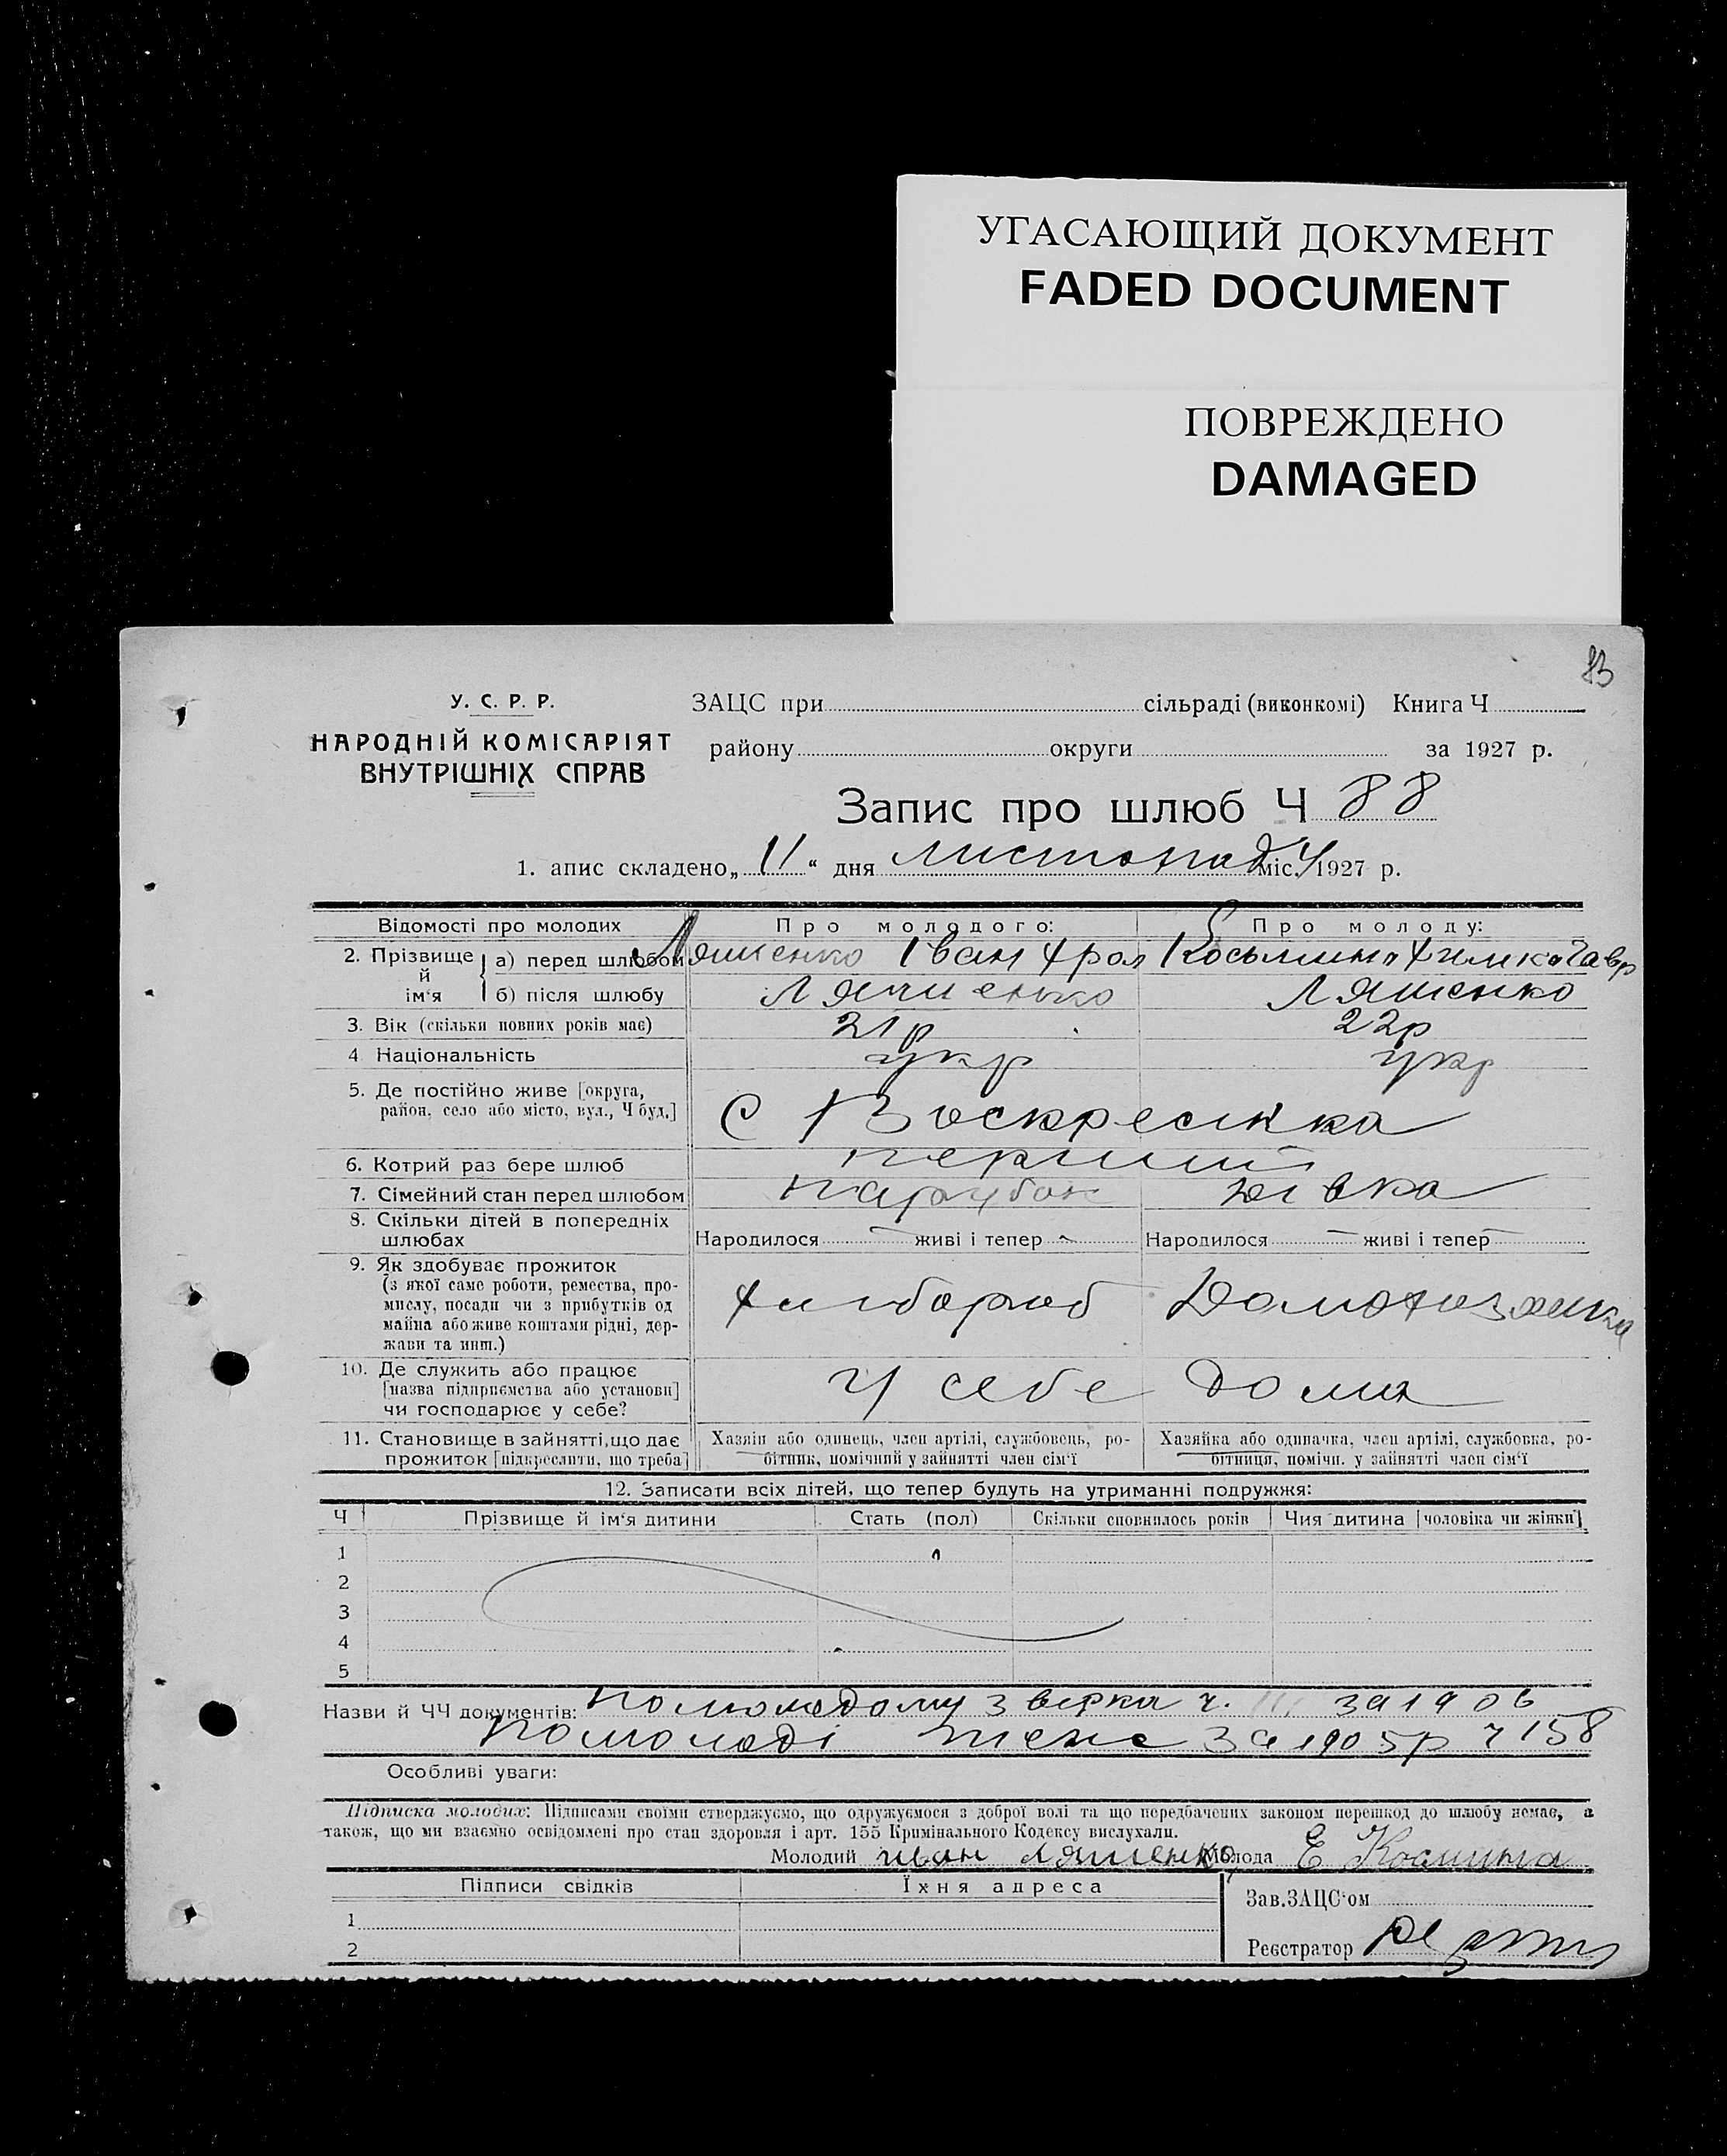 УГАСАЮЩИЙ ДОКУМЕНТ
FADED DOCUMENT
ПОВРЕЖДЕНО
DAMAGED
У. С. Р. Р.
НАРОДНІЙ КОМІСАРІЯТ
ВНУТРІШНІХ СПРАВ
ЗАЦС при сільраді (виконкомі) Книга Ч
району округи за 1927 р.
Запис про шлюб Ч 88
1. апис складено „11“ дня листопад міс. 1927 р.
Відомості про молодих Про молодого: Про молоду:
2. Прізвище й ім'я
а) перед шлюбом Ляшенко Іван Хрол Косьмина Химка Гавр
б) після шлюбу Ляшенько Ляшенко
3. Вік (скільки повних років має) 21р 22р
4 Національність укр укр
5. Де постійно живе [округа,
район, село або місто, вул., Ч буд.] С Воскресінка
6. Котрий раз бере шлюб перший
7. Сімейний стан перед шлюбом парубок дівка
8. Скільки дітей в попередніх
шлюбах Народилося — живі і тепер — Народилося — живі і тепер —
9. Як здобуває прожиток
(з якої саме роботи, ремества, про-
мислу, посади чи з прибутків од
майна або живе коштами рідні, дер-
жави та инш.)
Хлібороб Домохазяйка
10. Де служить або працює
[назва підприємства або установи]
чи господарює у себе?
у себе дома
11. Становище в зайнятті, що дає
прожиток [підкреслити, що треба]
Хазяїн або одинець, член артілі, службовець, ро-
бітник, помічний у зайнятті член сім'ї
Хазяйка або одиначка, член артілі, службовка, ро-
бітниця, помічн. у зайнятті член сім'ї
12. Записати всіх дітей, що тепер будуть на утриманні подружжя:
Ч Прізвище й ім'я дитини Стать (пол) Скільки сповнилось років Чия дитина [чоловіка чи жінки]
1
2
3
4
5
Назви й ЧЧ документів: по молодому з верка ч. за 1906
по молоді за 1905р ч 158
Особливі уваги:
Підписка молодих: Підписами своїми стверджуємо, що одружуємося з доброї волі та що передбачених законом перешкод до шлюбу немає, а
також, що ми взаємно освідомлені про стан здоровля і арт. 155 Кримінального Кодексу вислухали.
Молодий иван ляшенко Молода Е Космина
Підписи свідків Їхня адреса
1
2
Зав.ЗАЦС'ом
Реєстратор